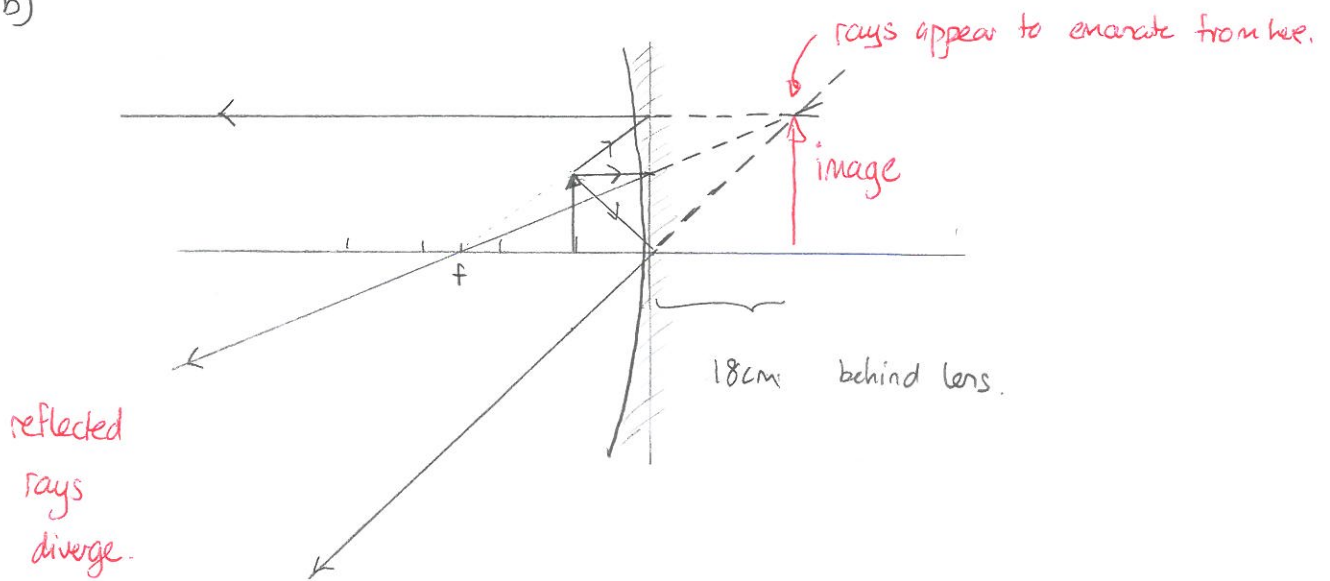 b)
rays appear to emanate from here.
image
f
18cm behind lens.
reflected
rays
diverge.